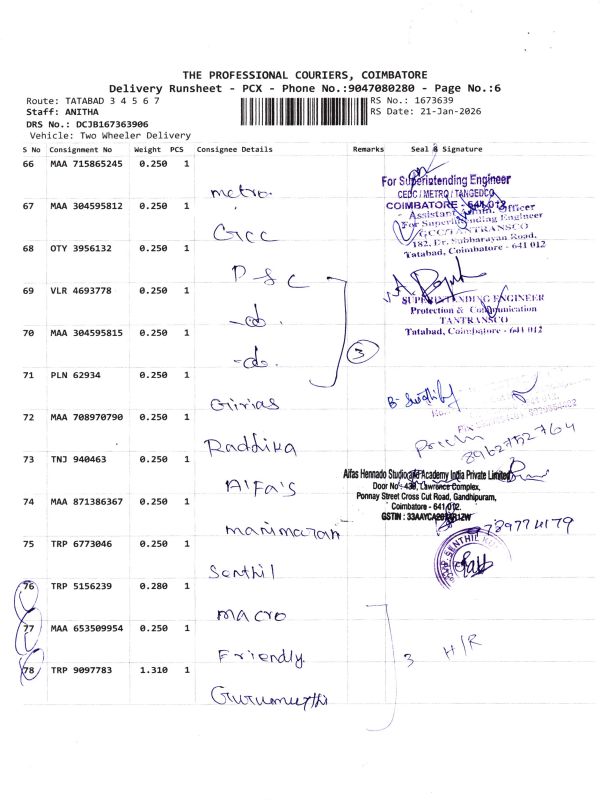 THE PROFESSIONAL COURIERS, COIMBATORE
Delivery Runsheet - PCX - Phone No.:9047080280 - Page No.:6
Route: TATABAD 3 4 5 6 7
RS No.: 1673639
Staff: ANITHA
RS Date: 21-Jan-2026
DRS No.: DCJB167363906
Vehicle: Two Wheeler Delivery
S No Consignment No Weight PCS Consignee Details Remarks Seal & Signature
66 MAA 715865245 0.250 1
metro.
For Superintending Engineer
CEDC / METRO / TANGEDCO
COIMBATORE - 641 012
67 MAA 304595812 0.250 1
GCC
Assistant Admn. Officer
For Superintending Engineer
GCC/TANTRANSCO
182, Dr. Subbarayan Road,
Tatabad, Coimbatore - 641 012
68 OTY 3956132 0.250 1
P S C
69 VLR 4693778 0.250 1
-do.
SUPERINTENDING ENGINEER
Protection & Communication
TANTRANSCO
Tatabad, Coimbatore - 641 012
70 MAA 304595815 0.250 1
-do.
3
71 PLN 62934 0.250 1
Girias
72 MAA 708970790 0.250 1
Raddika
8962752764
73 TNJ 940463 0.250 1
Alfa's
Alfas Hennado Studio and Academy India Private Limited
Door No : 430, Lawrence Complex,
Ponnay Street Cross Cut Road, Gandhipuram,
Coimbatore - 641 012.
74 MAA 871386367 0.250 1
manimaran
9789774179
75 TRP 6773046 0.250 1
Senthil
76 TRP 5156239 0.280 1
macro
77 MAA 653509954 0.250 1
Friendly
3 H/R
78 TRP 9097783 1.310 1
Gurumurthi